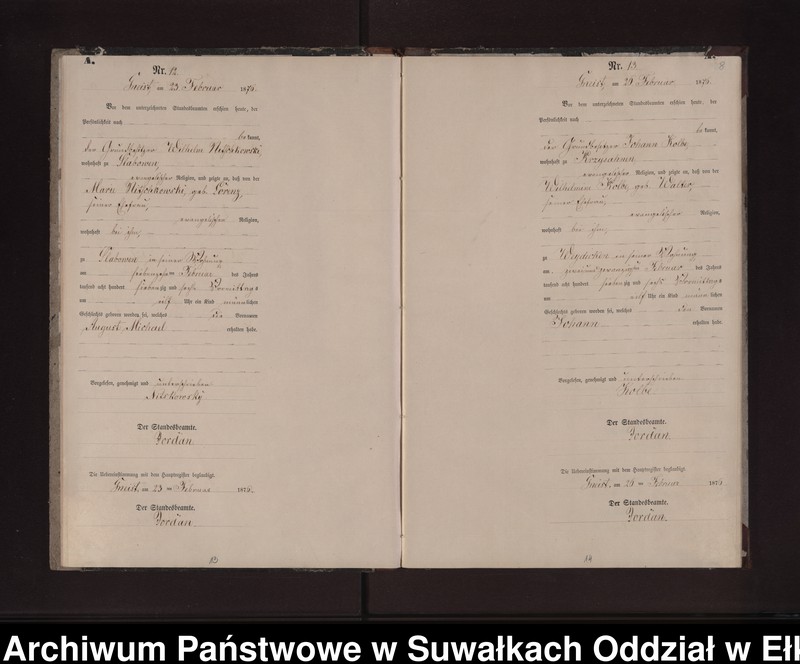 Nr. 12
am 23 Februar 1876.
Vor dem unterzeichneten Standesbeamten erschien heute, der
Persönlichkeit nach
be kannt,
der Grundbesitzer Wilhelm
wohnhaft zu Glabowen,
evangelischer Religion, und zeigte an, daß von der
geb.
seiner Ehefrau,
evangelischer Religion,
wohnhaft bei ihm,
zu Glabowen in seiner Wohnung
am siebenzehn Februar des Jahres
tausend acht hundert siebenzig und sechs Vormittags
um elf Uhr ein Kind männlichen
Geschlechts geboren worden sei, welches die Vornamen
August Michael erhalten habe.
Vorgelesen, genehmigt und unterschrieben
Der Standesbeamte.
Jordan.
Die Uebereinstimmung mit dem Hauptregister beglaubigt.
am 23 ten Februar 1876.
Der Standesbeamte.
Jordan
13
8
Nr. 13
am 26 Februar 1876.
Vor dem unterzeichneten Standesbeamten erschien heute, der
Persönlichkeit nach
be kannt,
der Grundbesitzer Johann Kolbe,
wohnhaft zu
evangelischer Religion, und zeigte an, daß von der
Kolbe, geb.
seiner Ehefrau,
evangelischer Religion,
wohnhaft bei ihm,
zu in seiner Wohnung
am zweiundzwanzig Februar des Jahres
tausend acht hundert siebenzig und sechs Vormittags
um elf Uhr ein Kind männlichen
Geschlechts geboren worden sei, welches den Vornamen
Johann erhalten habe.
Vorgelesen, genehmigt und unterschrieben
Kolbe
Der Standesbeamte.
Jordan.
Die Uebereinstimmung mit dem Hauptregister beglaubigt.
am 26 ten Februar 1876
Der Standesbeamte.
Jordan.
14
Archiwum Państwowe w Suwałkach Oddział w Eł